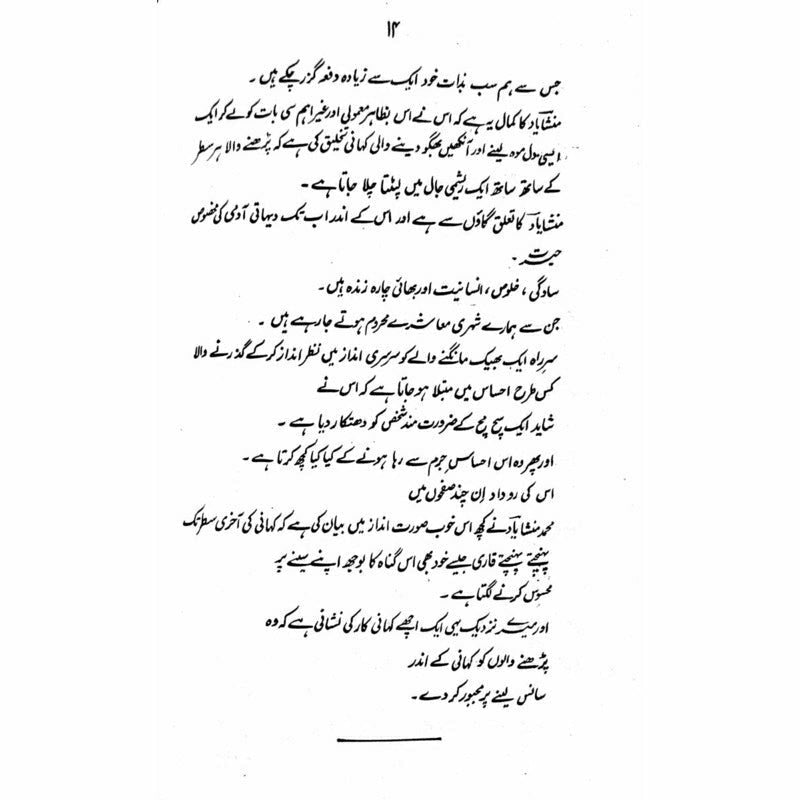 ۱۴
جس سے ہم سب بذات خود ایک سے زیادہ دفعہ گزر چکے ہیں ۔
منشایاد کا کمال یہ ہے کہ اس نے اس بظاہر معمولی اور غیر اہم سی بات کو لے کر ایک
ایسی دل موہ لینے اور آنکھیں بھگو دینے والی کہانی تخلیق کی ہے کہ پڑھنے والا ہر سطر
کے ساتھ ساتھ ایک ریشمی جال میں لپٹتا چلا جاتا ہے ۔
منشایاد کا تعلق گاؤں سے ہے اور اس کے اندر اب تک دیہاتی آدمی کی مخصوص
حیرت ۔
سادگی ، خلوص ، انسانیت اور بھائی چارہ زندہ ہیں ۔
جن سے ہمارے شہری معاشرے محروم ہوتے جا رہے ہیں ۔
سرِ راہ ایک بھیک مانگنے والے کو سرسری انداز میں نظر انداز کر کے گذرنے والا
کس طرح احساس میں مبتلا ہو جاتا ہے کہ اس نے
شاید ایک سچ مچ کے ضرورت مند شخص کو دھتکار دیا ہے ۔
اور پھر وہ اس احساسِ جرم سے رہا ہونے کے کیا کیا کچھ کرتا ہے ۔
اس کی روداد اِن چند صفحوں میں
محمد منشایاد نے کچھ اس خوب صورت انداز میں بیان کی ہے کہ کہانی کی آخری سطر تک
پہنچتے پہنچتے قاری جیسے خود بھی اس گناہ کا بوجھ اپنے سینے پر
محسوس کرنے لگتا ہے ۔
اور میرے نزدیک یہی ایک اچھے کہانی کار کی نشانی ہے کہ وہ
پڑھنے والوں کو کہانی کے اندر
سانس لینے پر مجبور کر دے ۔